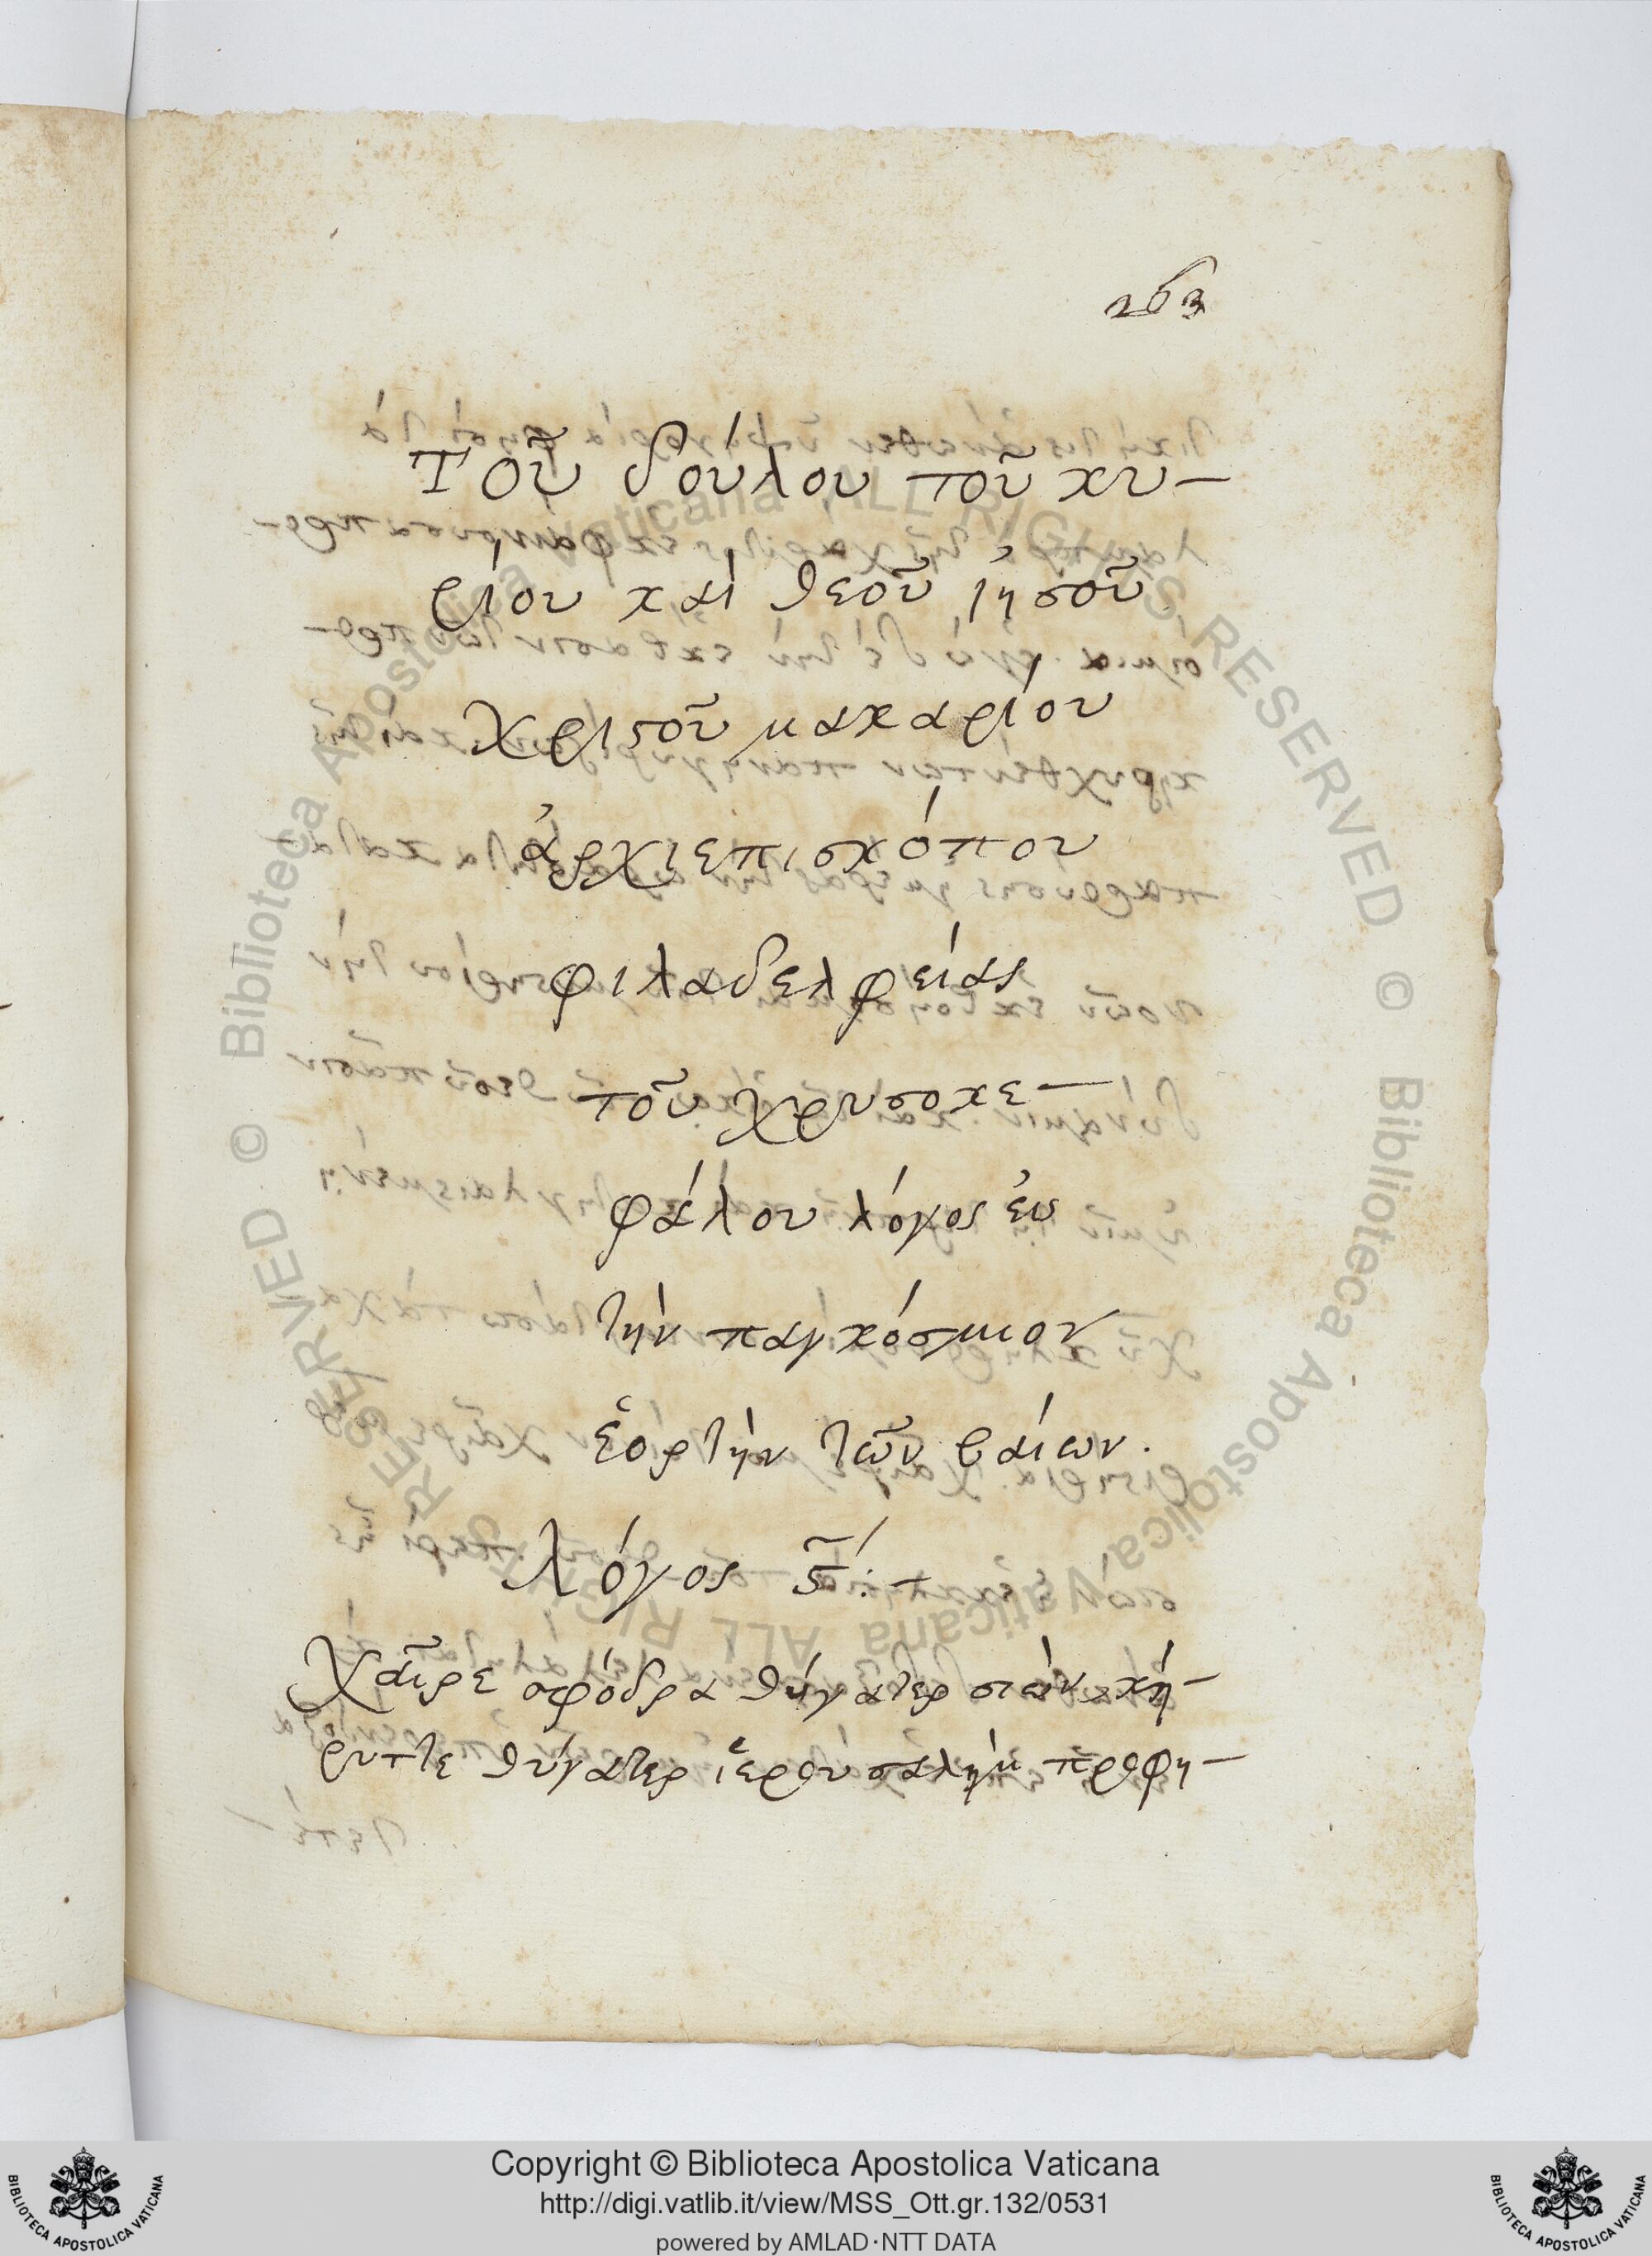 263
Τοῦ δούλου τοῦ κυ-
ρίου καὶ θεοῦ ἰησοῦ
χριϛοῦ μακαρίου
ἀρχιεπισκόπου
φιλαδελφείας
τοῦ χρυσοκε-
φάλου λόγος εἰς
τὴν παγκόσμιον
ἑορτὴν τῶν βαΐων.
Λόγος ϛ΄:-
Χαῖρε σφόδρα θύγατερ σιὼν, κή-
ρυττε θύγατερ ἱερουσαλὴμ προφη-
Copyright © Biblioteca Apostolica Vaticana
http://digi.vatlib.it/view/MSS_Ott.gr.132/0531
powered by AMLAD·NTT DATA
BIBLIOTECA APOSTOLICA VATICANA
BIBLIOTECA APOSTOLICA VATICANA
© Biblioteca Apostolica Vaticana ALL RIGHTS RESERVED
© Biblioteca Apostolica Vaticana ALL RIGHTS RESERVED